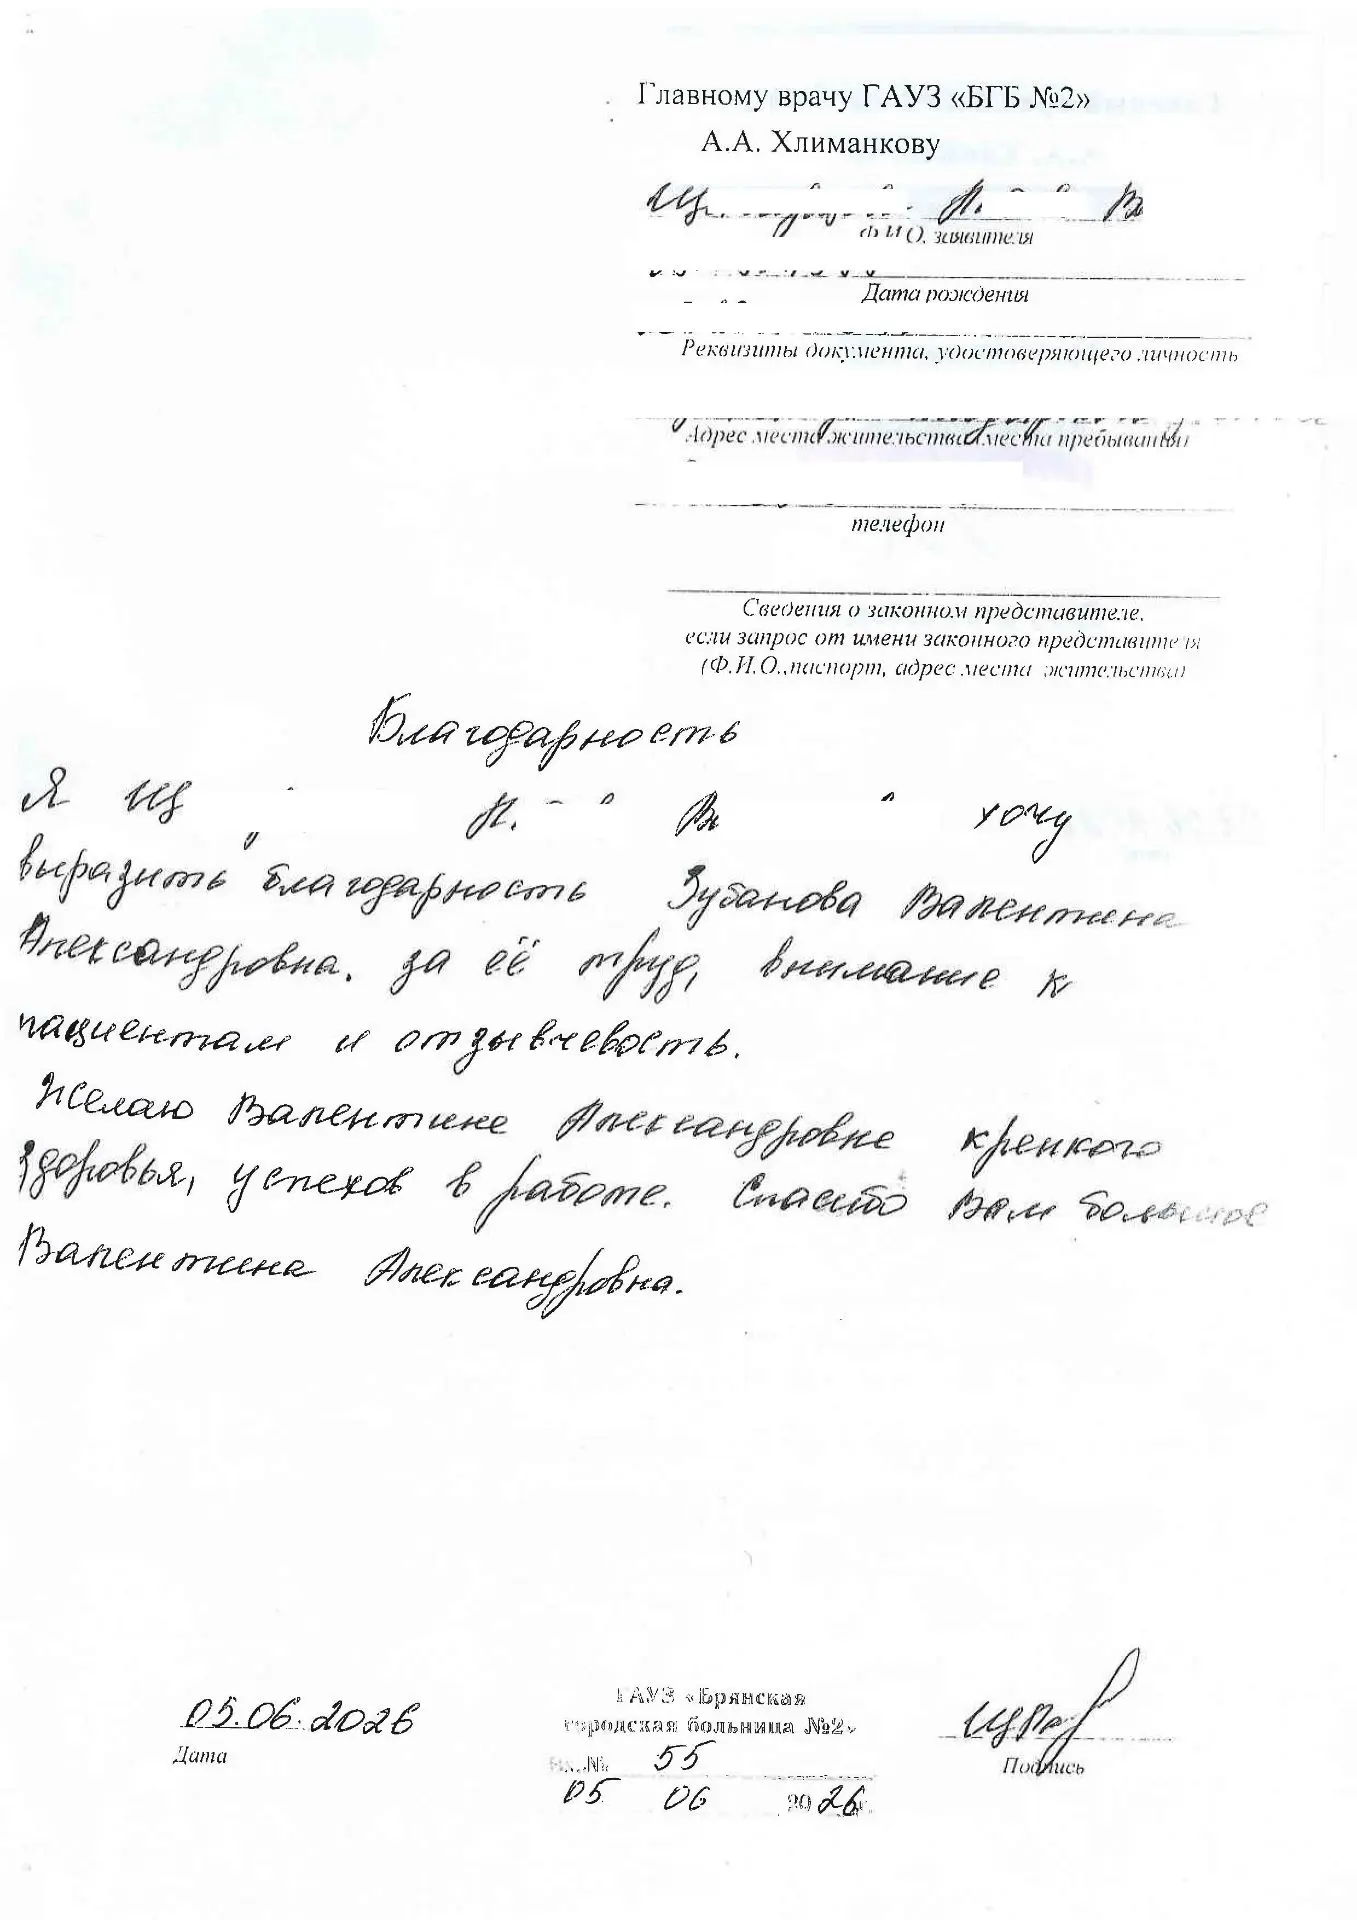 Главному врачу ГАУЗ «БГБ №2»
А.А. Хлиманкову
Ф.И.О. заявителя
Дата рождения
Реквизиты документа, удостоверяющего личность
Адрес места жительства/места пребывания
телефон
Сведения о законном представителе,
если запрос от имени законного представителя
(Ф.И.О.,паспорт, адрес места жительства)
Благодарность
Я хочу
выразить благодарность Зубанова Валентина
Александровна. за её труд, внимание к
пациентам и отзывчевость.
Желаю Валентине Александровне крепкого
здоровья, успехов в работе. Спасибо Вам большое
Валентина Александровна.
05.06.2026
Дата
ГАУЗ «Брянская
городская больница №2»
Вх.№ 55
05 06 2026г.
Подпись